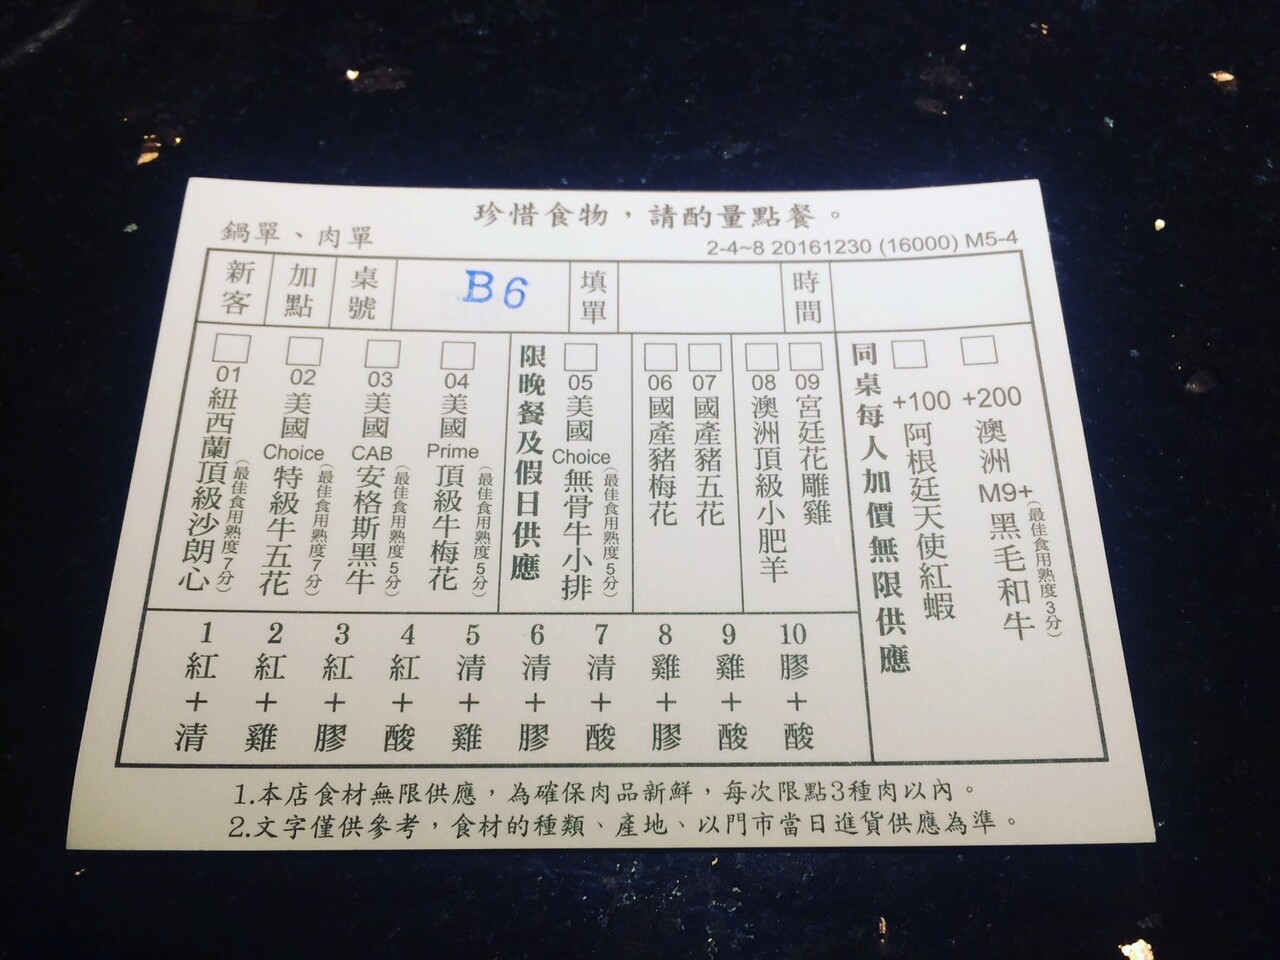 珍惜食物，請酌量點餐。
鍋單、肉單
2-4~8 20161230 (16000) M5-4
新客
加點
桌號
B6
填單
時間
01 紐西蘭頂級沙朗心
(最佳食用熟度7分)
02 美國Choice特級牛五花
(最佳食用熟度7分)
03 美國CAB安格斯黑牛
(最佳食用熟度5分)
04 美國Prime頂級牛梅花
(最佳食用熟度5分)
限晚餐及假日供應
05 美國Choice無骨牛小排
(最佳食用熟度5分)
06 國產豬梅花
07 國產豬五花
08 澳洲頂級小肥羊
09 宮廷花雕雞
同桌每人加價無限供應
+100 阿根廷天使紅蝦
+200 澳洲M9+黑毛和牛
(最佳食用熟度3分)
1 紅+清
2 紅+雞
3 紅+膠
4 紅+酸
5 清+雞
6 清+膠
7 清+酸
8 雞+膠
9 雞+酸
10 膠+酸
1.本店食材無限供應，為確保肉品新鮮，每次限點3種肉以內。
2.文字僅供參考，食材的種類、產地、以門市當日進貨供應為準。